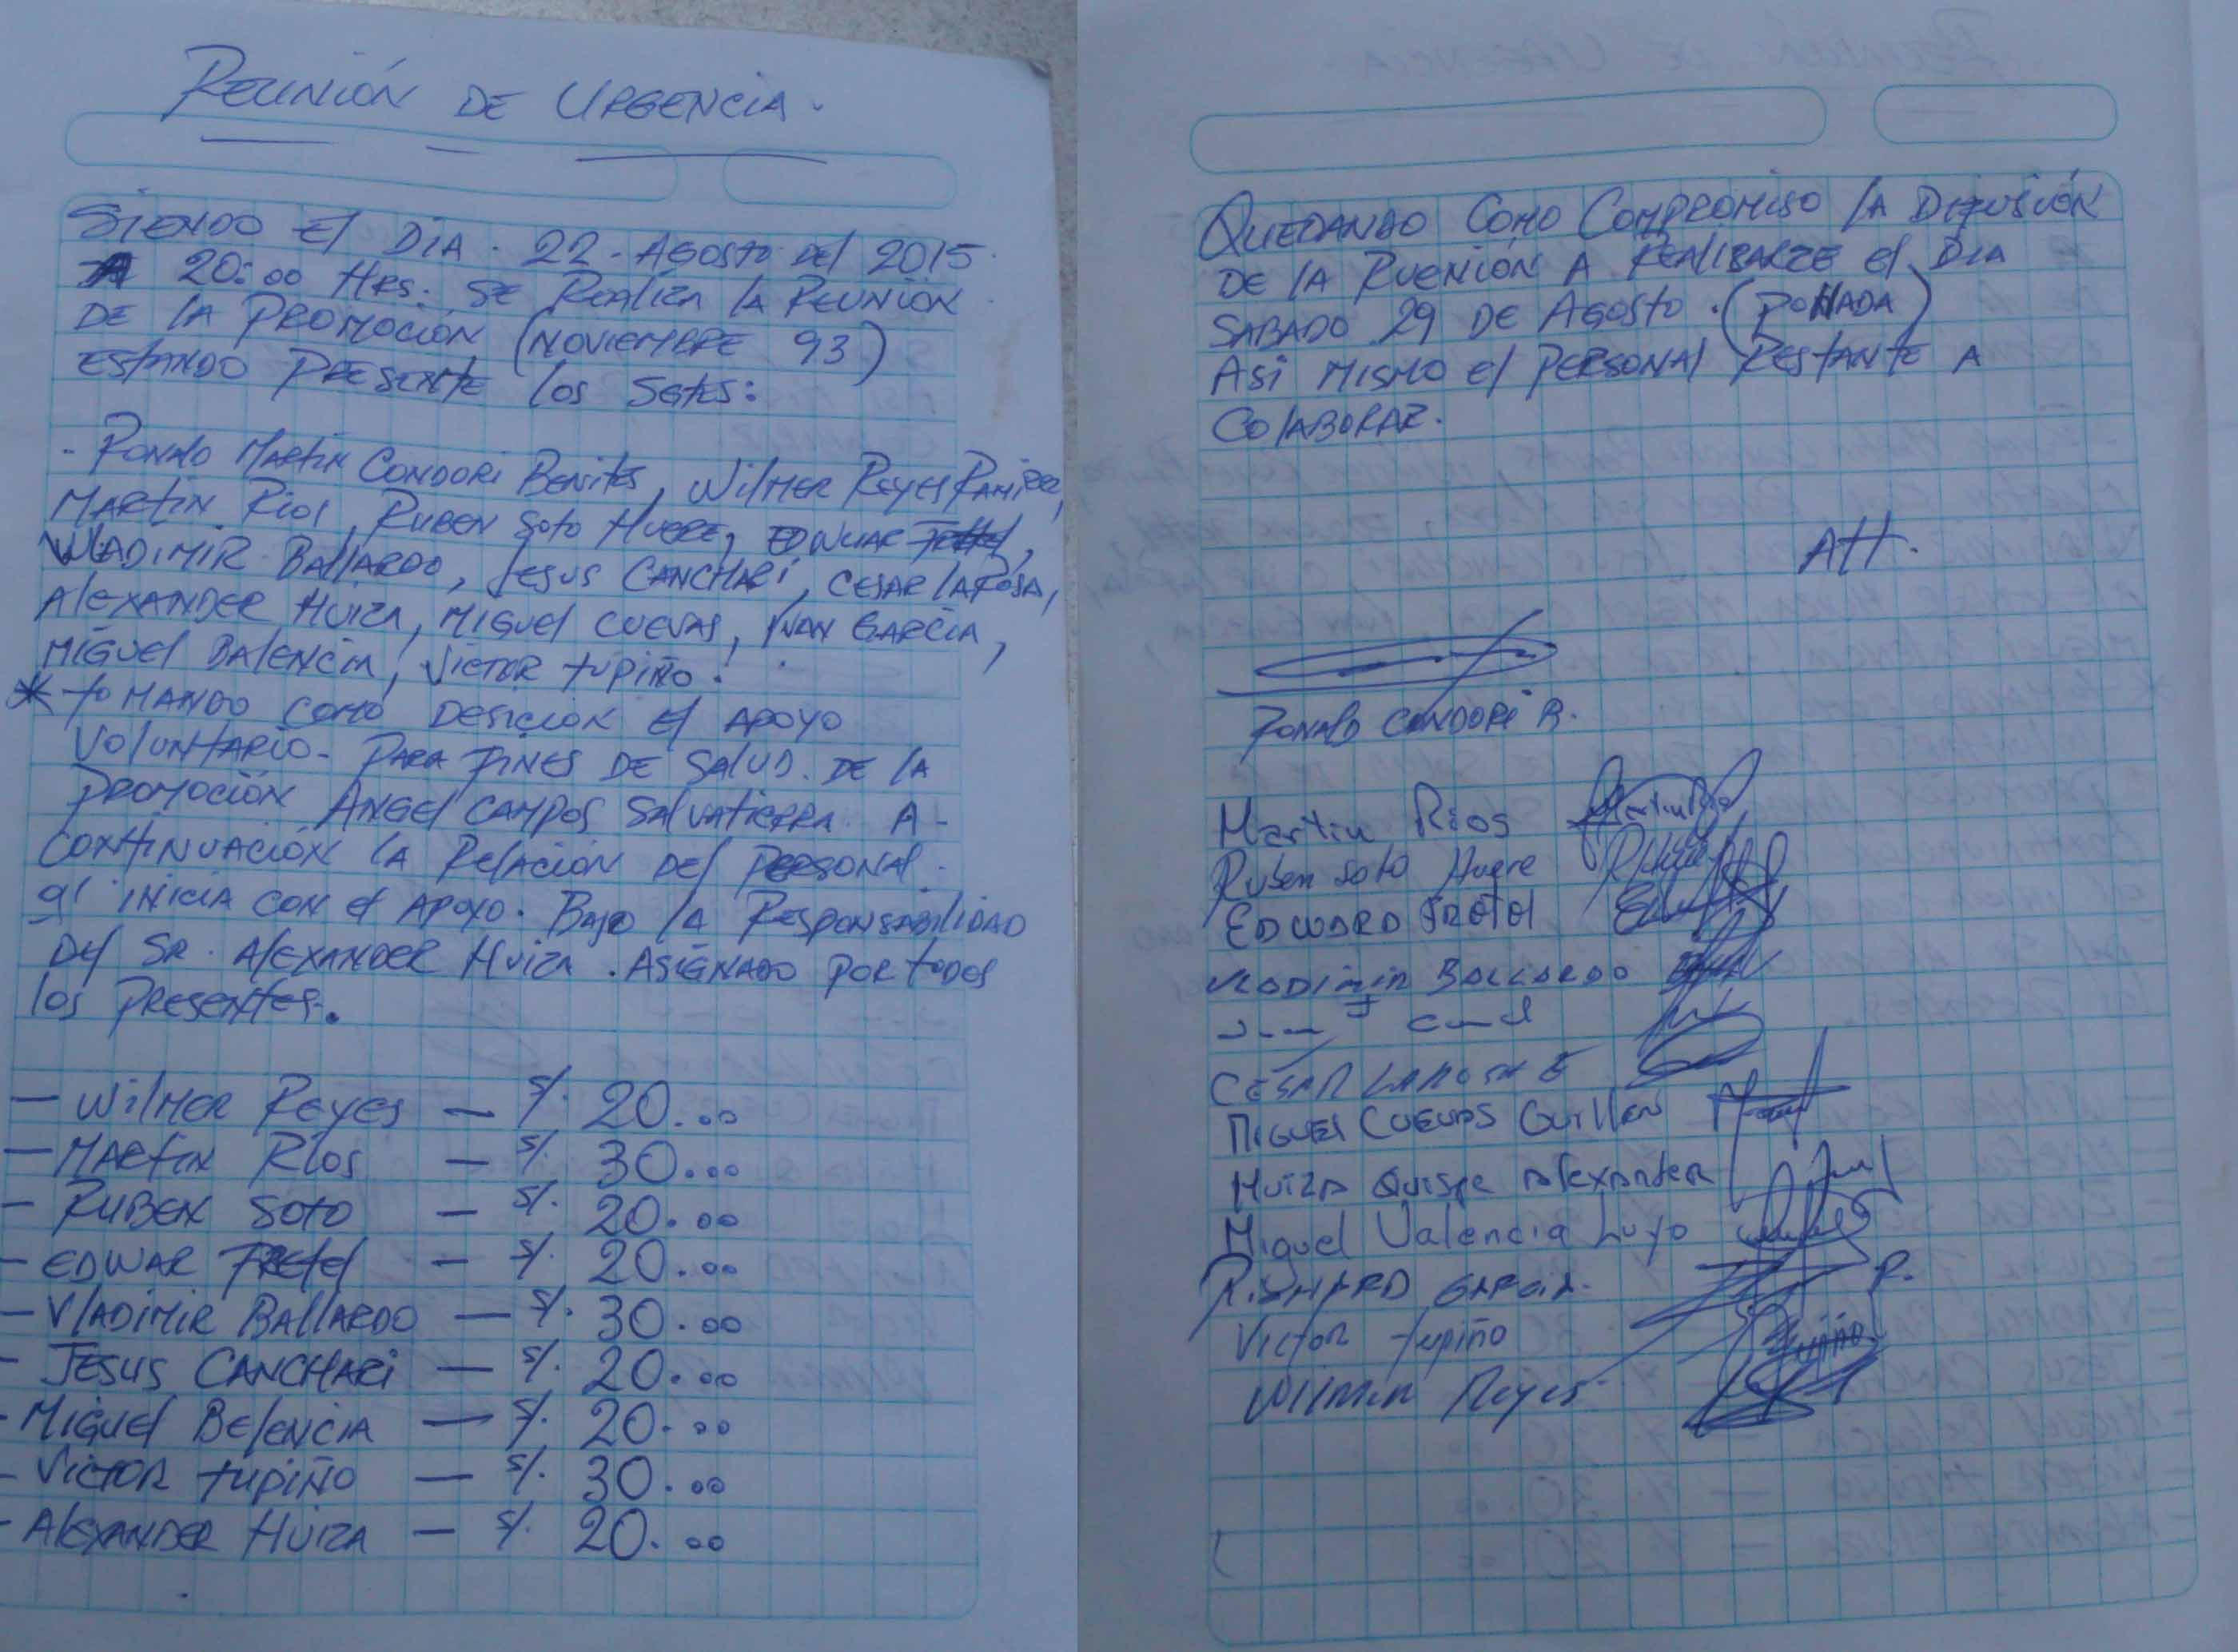 REUNIÓN DE URGENCIA.
SIENDO El DIA. 22 - AGOSTO DEl 2015.
A 20:00 HRS: SE REAlIZA lA REUNIÓN
DE lA PROMOCIÓN (NOVIEMBRE 93)
ESTANDO PRESENTE los Sgtes:
- RONALD MARTIN CONDORI BENITES, WilMER REYES RAMIREZ,
MARTIN RIOS, RUBEN SOTO HUERE, EDWUAR FRETEl,
WLADIMIR BAllARDO, JESUS CANCHARI, CESAR lAROSA,
AlEXANDER HUIZA, MIGUEl CUEVAS, IVAN GARCIA,
MIGUEl BAlENCIA, VICTOR TUPIÑO.
* TOMANDO COMO DESICION El APOYO
VOlUNTARIO - PARA FINES DE SAlUD. DE lA
PROMOCIÓN ANGEl CAMPOS SAlVATIERRA. A -
CONTINUACIÓN lA RElACIÓN DEl PERSONAl.
q' INICIA CON el APOYO. BAJO lA RESPONSABILIDAD
DEl SR. AlEXANDER HUIZA. ASIGNADO POR TODOS
los PRESENTES.
— WilMER REYES — S/. 20.00
— MARTIN RIOS — S/. 30.00
— RUBEN SOTO — S/. 20.00
— EDWAR FRETEl — S/. 20.00
— VlADIMIR BAllARDO — S/. 30.00
— JESUS CANCHARI — S/. 20.00
- MIGUEl BElENCIA — S/. 20.00
- VICTOR TUPIÑO — S/. 30.00
- AlEXANDER HUIZA — S/. 20.00
QUEDANDO COMO COMPROMISO lA DIFUSIÓN
DE lA RUENIÓN A REAlIBARZE el DIA
SABADO 29 DE AGOSTO. (POllADA)
ASI MISMO el PERSONAl RESTANTE A
COlABORAR.
Att.
RONALD CONDORI B.
Martin Rios
Ruben soto Huere
EDWARD FRETEL
VLADIMIR BALLARDO
CESAR LAROSA E
MIGUEL CUEVAS GUILLEN
HUIZA QUISPE ALEXANDER
Miguel Valencia Luyo
RISHARD GARCIA.
VICTOR TUPIÑO
WILMER REYES